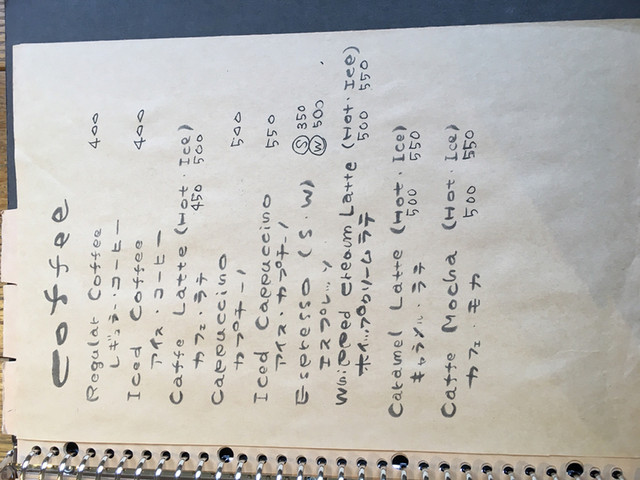 Coffee
Regular Coffee 400
レギュラー・コーヒー
Iced Coffee 400
アイス・コーヒー
Caffe Latte (Hot・Ice)
カフェ・ラテ 450 500
Cappuccino 500
カプチーノ
Iced Cappuccino 550
アイス・カプチーノ
Espresso (S・W) Ⓢ 350
エスプレッソ Ⓦ 500
Whipped Cream Latte (Hot・Ice)
ホイップクリームラテ 500 550
Caramel Latte (Hot・Ice)
キャラメル・ラテ 500 550
Caffe Mocha (Hot・Ice)
カフェ・モカ 500 550